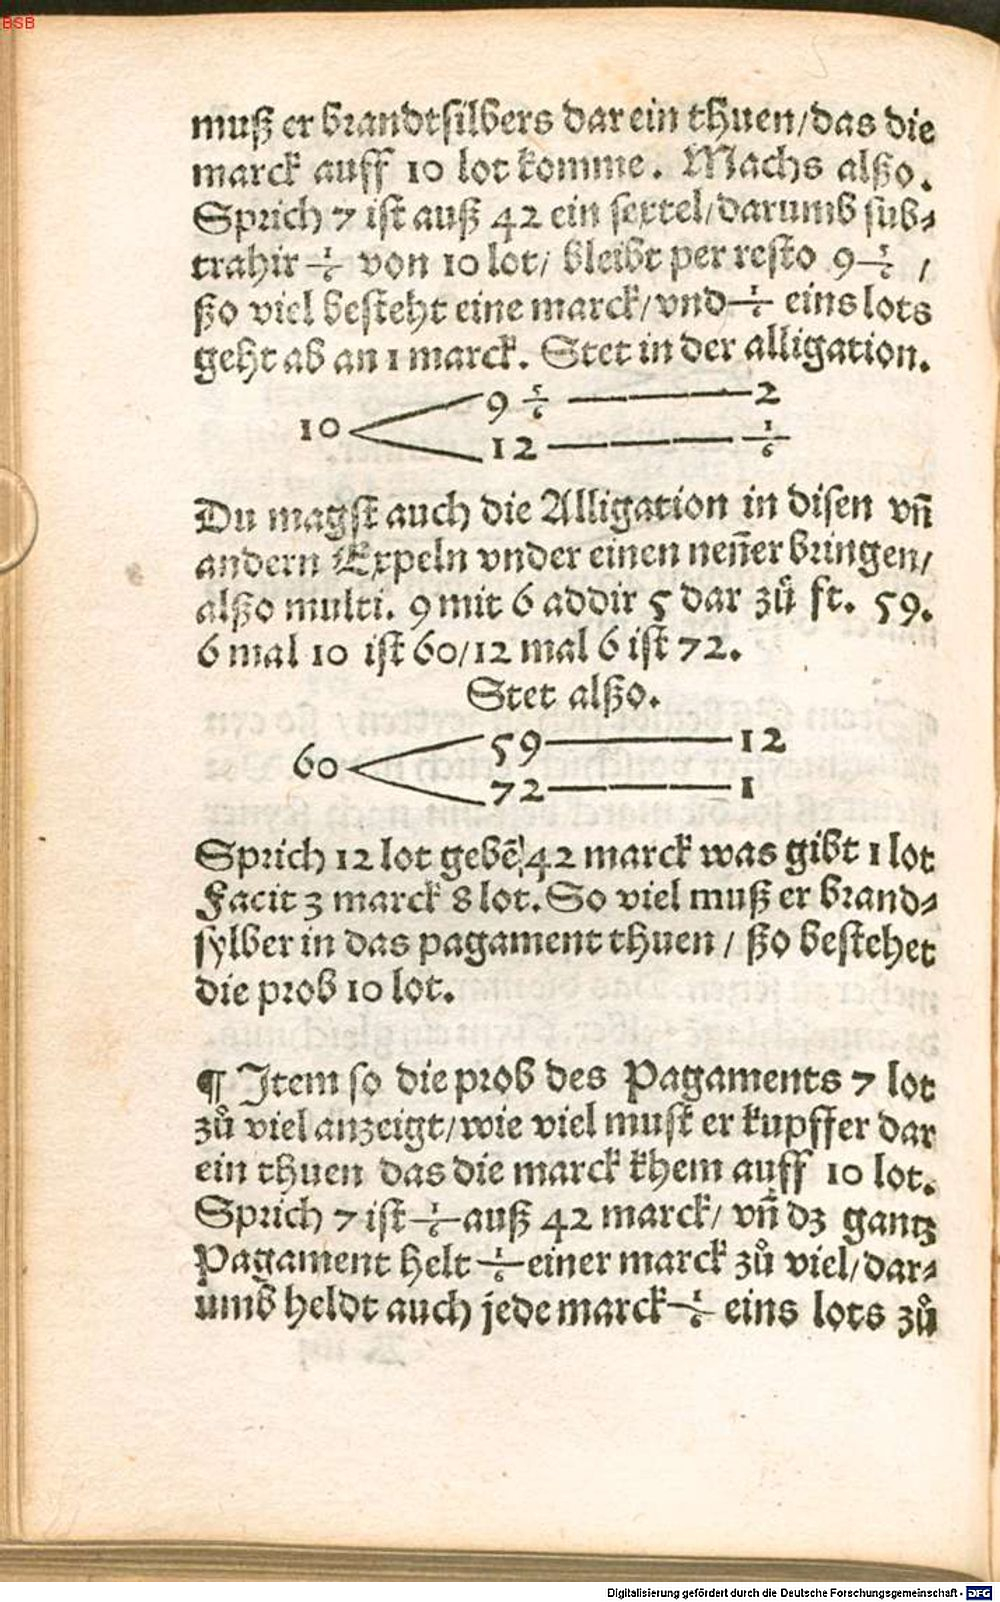 BSB
muß er brandtsilbers dar ein thuen/das die
marck auff 10 lot komme. Machs alßo.
Sprich 7 ist auß 42 ein sextel/darumb sub⸗
trahir 1/6 von 10 lot/ bleibt per resto 9 5/6 /
ßo viel besteht eine marck/vnd 1/6 eins lots
geht ab an 1 marck. Stet in der alligation.
10 9 5/6 2
12 1/6
Du magst auch die Alligation in disen vñ
andern Expeln vnder einen neñer bringen/
alßo multi. 9 mit 6 addir 5 dar zů ft. 59.
6 mal 10 ist 60/12 mal 6 ist 72.
Stet alßo.
60 59 12
72 1
Sprich 12 lot gebẽ/42 marck was gibt 1 lot
Facit 3 marck 8 lot. So viel muß er brand⸗
sylber in das pagament thuen / ßo bestehet
die prob 10 lot.
¶ Item so die prob des Pagaments 7 lot
zů viel anzeigt/wie viel must er kupffer dar
ein thuen das die marck khem auff 10 lot.
Sprich 7 ist 1/6 auß 42 marck/ vñ dz gantz
Pagament helt 1/6 einer marck zů viel/dar⸗
umb heldt auch jede marck 1/6 eins lots zů
Digitalisierung gefördert durch die Deutsche Forschungsgemeinschaft - DFG